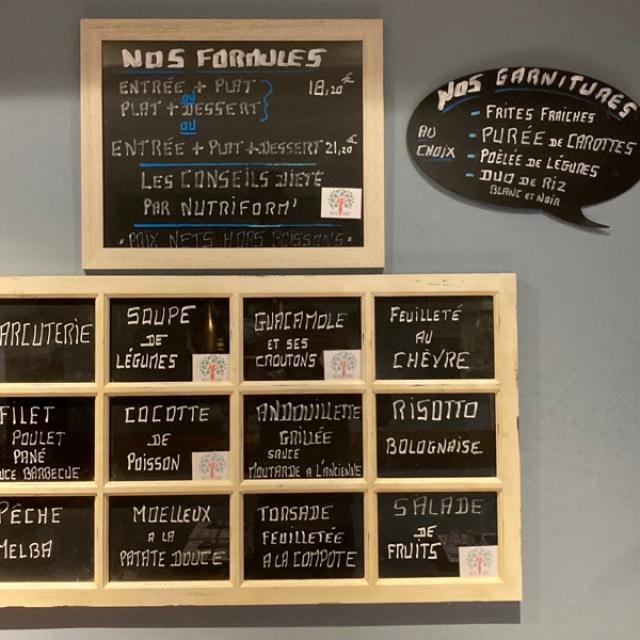 NOS FORMULES
ENTRÉE + PLAT 18,20€
OU
PLAT + DESSERT
OU
ENTRÉE + PLAT + DESSERT 21,20€
LES CONSEILS DIETE
PAR NUTRIFORM'
* PRIX NETS HORS BOISSONS *
NOS GARNITURES
AU
CHOIX
- FRITES FRAICHES
- PURÉE DE CAROTTES
- POÊLÉE DE LÉGUMES
- DUO DE RIZ
BLANC ET NOIR
ARCUTERIE
SOUPE
DE
LÉGUMES
GUACAMOLE
ET SES
CROUTONS
FEUILLETÉ
AU
CHÈVRE
FILET
POULET
PANÉ
UCE BARBECUE
COCOTTE
DE
POISSON
ANDOUILLETTE
GRILLÉE
SAUCE
MOUTARDE A L'ANCIENNE
RISOTTO
BOLOGNAISE
PÊCHE
MELBA
MOELLEUX
A LA
PATATE DOUCE
TORSADE
FEUILLETÉE
A LA COMPOTE
SALADE
DE
FRUITS